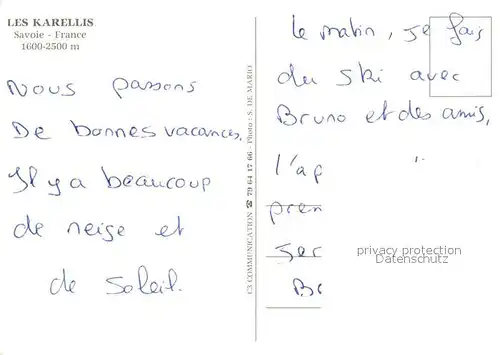 LES KARELLIS
Savoie - France
1600-2500 m
Nous passons
De bonnes vacances,
Il y a beaucoup
de neige et
de soleil.
CX COMMUNICATION ☎ 79 64 17 66 - Photo : S. DE MARIO
le matin, je fais
du ski avec
Bruno et des amis,
l'ap
pren
privacy protection
Datenschutz